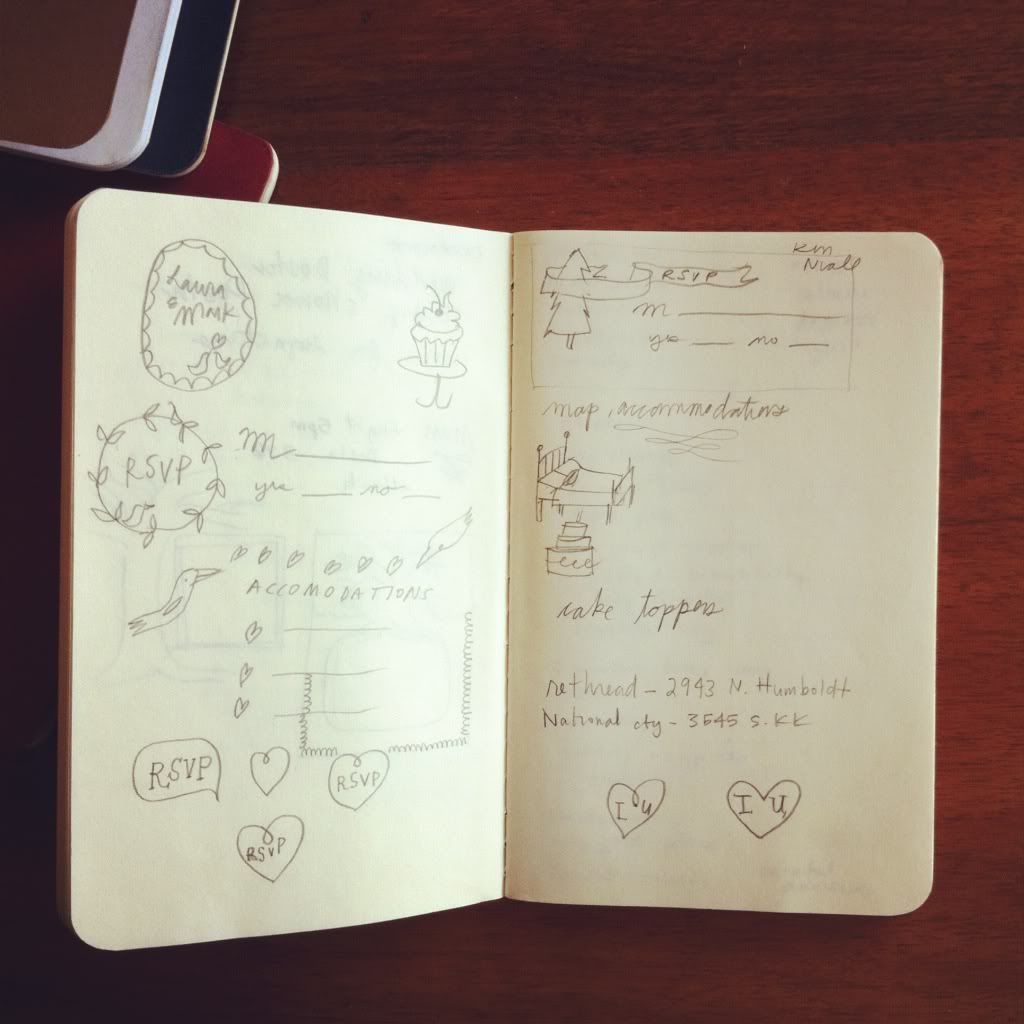 Laura
& Mark
RSVP
M
yes no
ACCOMODATIONS
RSVP
RSVP
RSVP
Kim
Niall
RSVP
M
yes no
map, accommodations
cake toppers
rethread - 2943 N. Humboldt
National city - 3545 S. KK
I U
I U